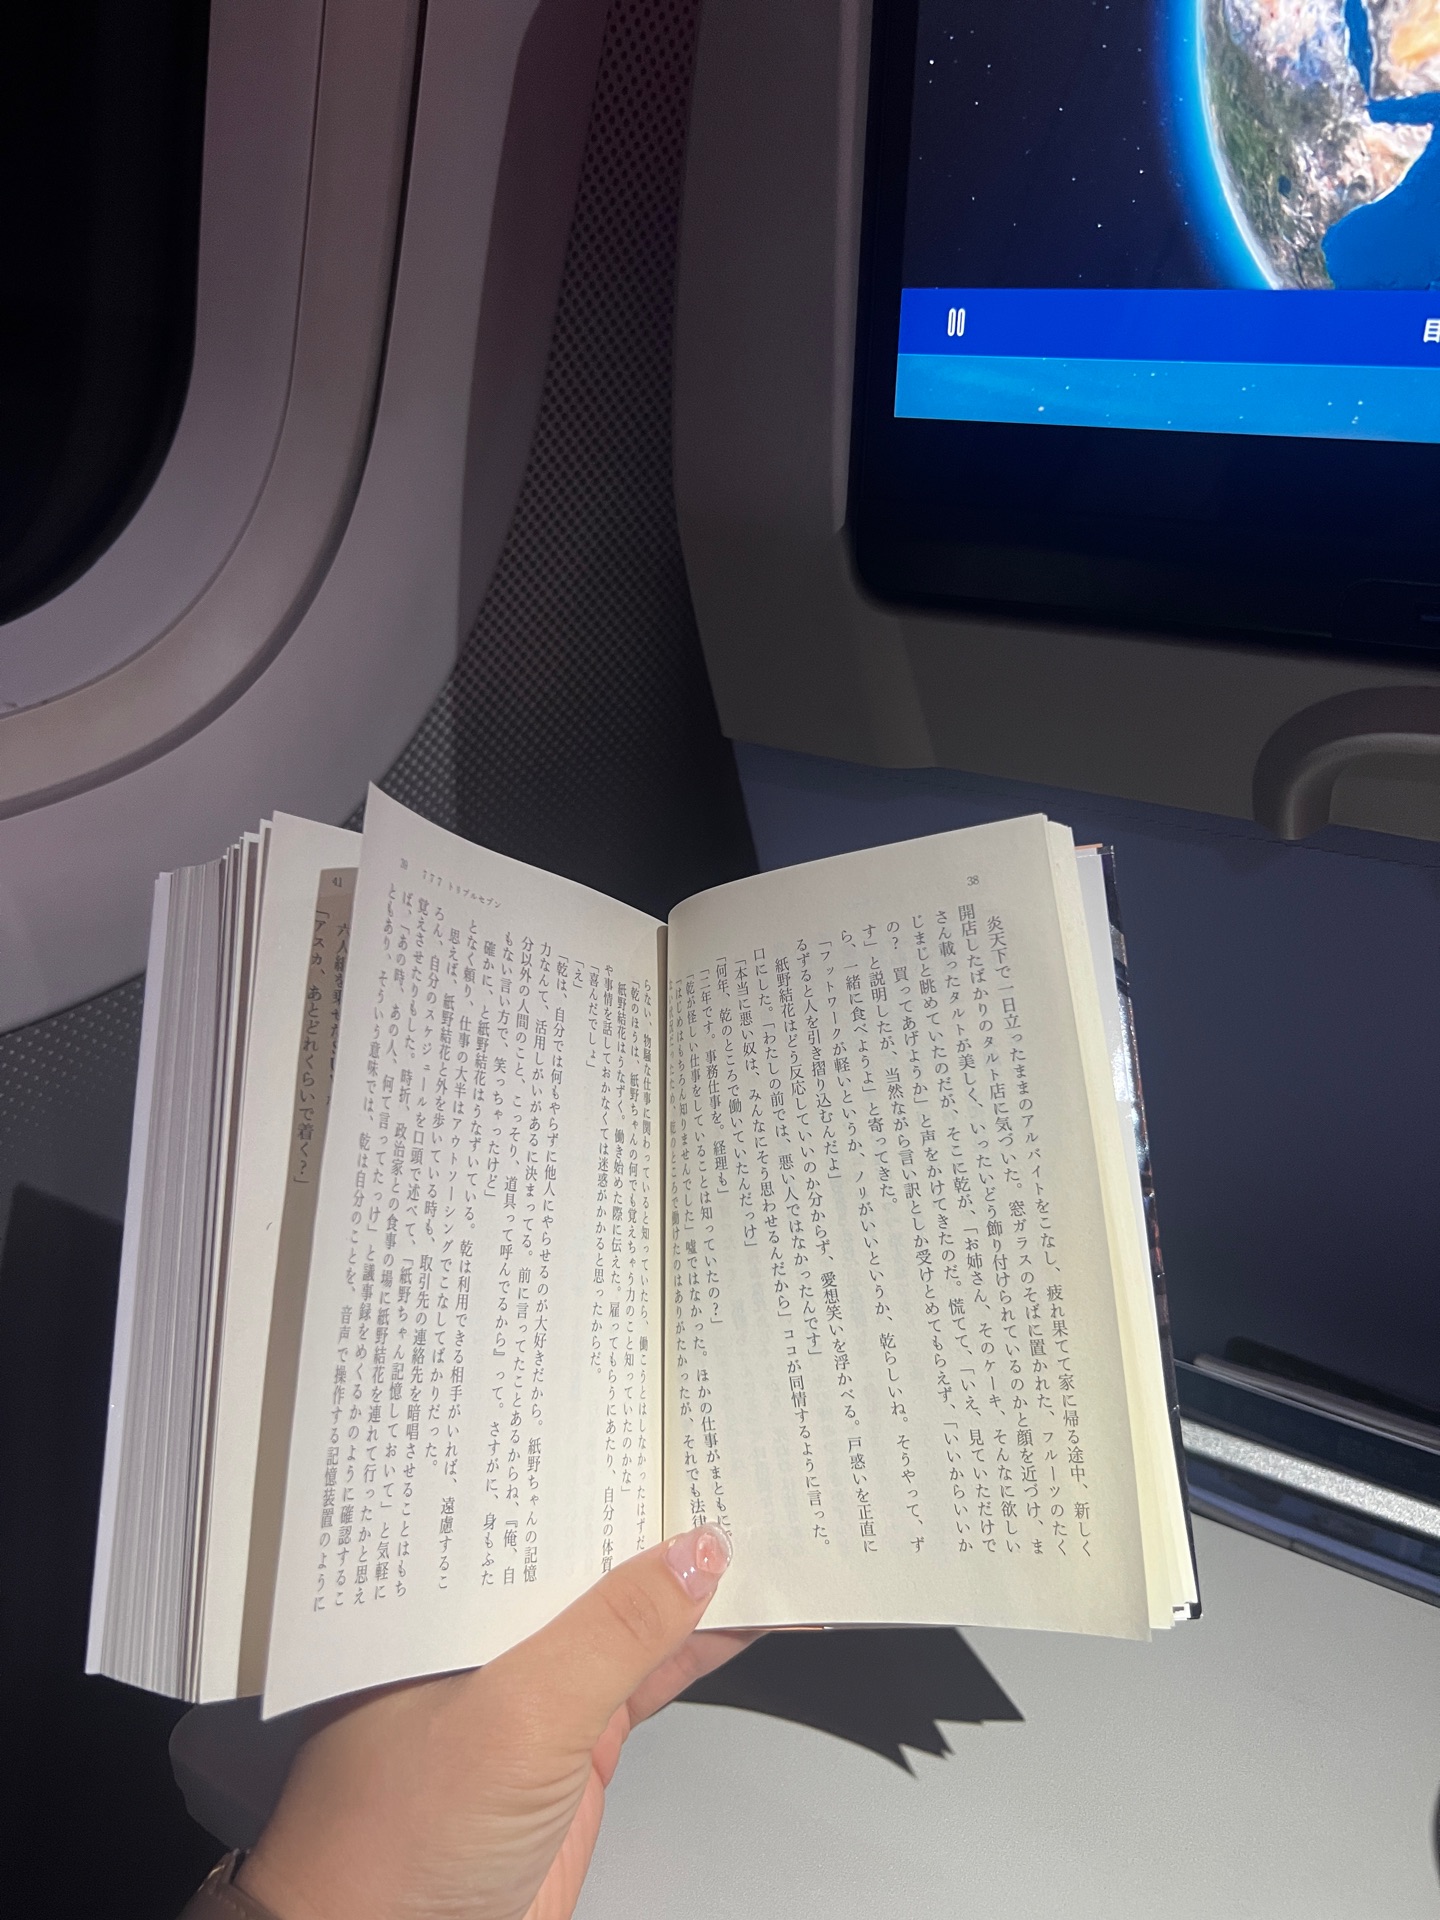 38
炎天下で一日立ったままのアルバイトをこなし、疲れ果てて家に帰る途中、新しく
開店したばかりのタルト店に気づいた。窓ガラスのそばに置かれた、フルーツのたく
さん載ったタルトが美しく、いったいどう飾り付けられているのかと顔を近づけ、ま
じまじと眺めていたのだが、そこに乾が、「お姉さん、そのケーキ、そんなに欲しい
の? 買ってあげようか」と声をかけてきたのだ。慌てて、「いえ、見ていただけで
す」と説明したが、当然ながら言い訳としか受けとめてもらえず、「いいからいいか
ら、一緒に食べようよ」と寄ってきた。
「フットワークが軽いというか、ノリがいいというか、乾らしいね。そうやって、ず
るずると人を引き摺り込むんだよ」
紙野結花はどう反応していいのか分からず、愛想笑いを浮かべる。戸惑いを正直に
口にした。「わたしの前では、悪い人ではなかったんです」
「本当に悪い奴は、みんなにそう思わせるんだから」ココが同情するように言った。
「何年、乾のところで働いていたんだっけ」
「二年です。事務仕事を。経理も」
「乾が怪しい仕事をしていることは知っていたの?」
「はじめはもちろん知りませんでした」嘘ではなかった。ほかの仕事がまともに
乾のところで働けたのはありがたかったが、それでも法律
39 777 トリプルセブン
らない、物騒な仕事に関わっていると知っていたら、働こうとはしなかったはずだ
「乾のほうは、紙野ちゃんの何でも覚えちゃう力のこと知っていたのかな」
紙野結花はうなずく。働き始めた際に伝えた。雇ってもらうにあたり、自分の体質
や事情を話しておかなくては迷惑がかかると思ったからだ。
「喜んだでしょ」
「え」
「乾は、自分では何もやらずに他人にやらせるのが大好きだから。紙野ちゃんの記憶
力なんて、活用しがいがあるに決まってる。前に言ってたことあるからね、『俺、自
分以外の人間のこと、こっそり、道具って呼んでるから』って。さすがに、身もふた
もない言い方で、笑っちゃったけど」
確かに、と紙野結花はうなずいている。乾は利用できる相手がいれば、遠慮するこ
となく頼り、仕事の大半はアウトソーシングでこなしてばかりだった。
思えば、紙野結花と外を歩いている時も、取引先の連絡先を暗唱させることはもち
ろん、自分のスケジュールを口頭で述べて、「紙野ちゃん記憶しておいて」と気軽に
覚えさせたりもした。時折、政治家との食事の場に紙野結花を連れて行ったかと思え
ば、「あの時、あの人、何て言ってたっけ」と議事録をめくるかのように確認するこ
ともあり、そういう意味では、乾は自分のことを、音声で操作する記憶装置のように
41
「アスカ、あとどれくらいで着く?」